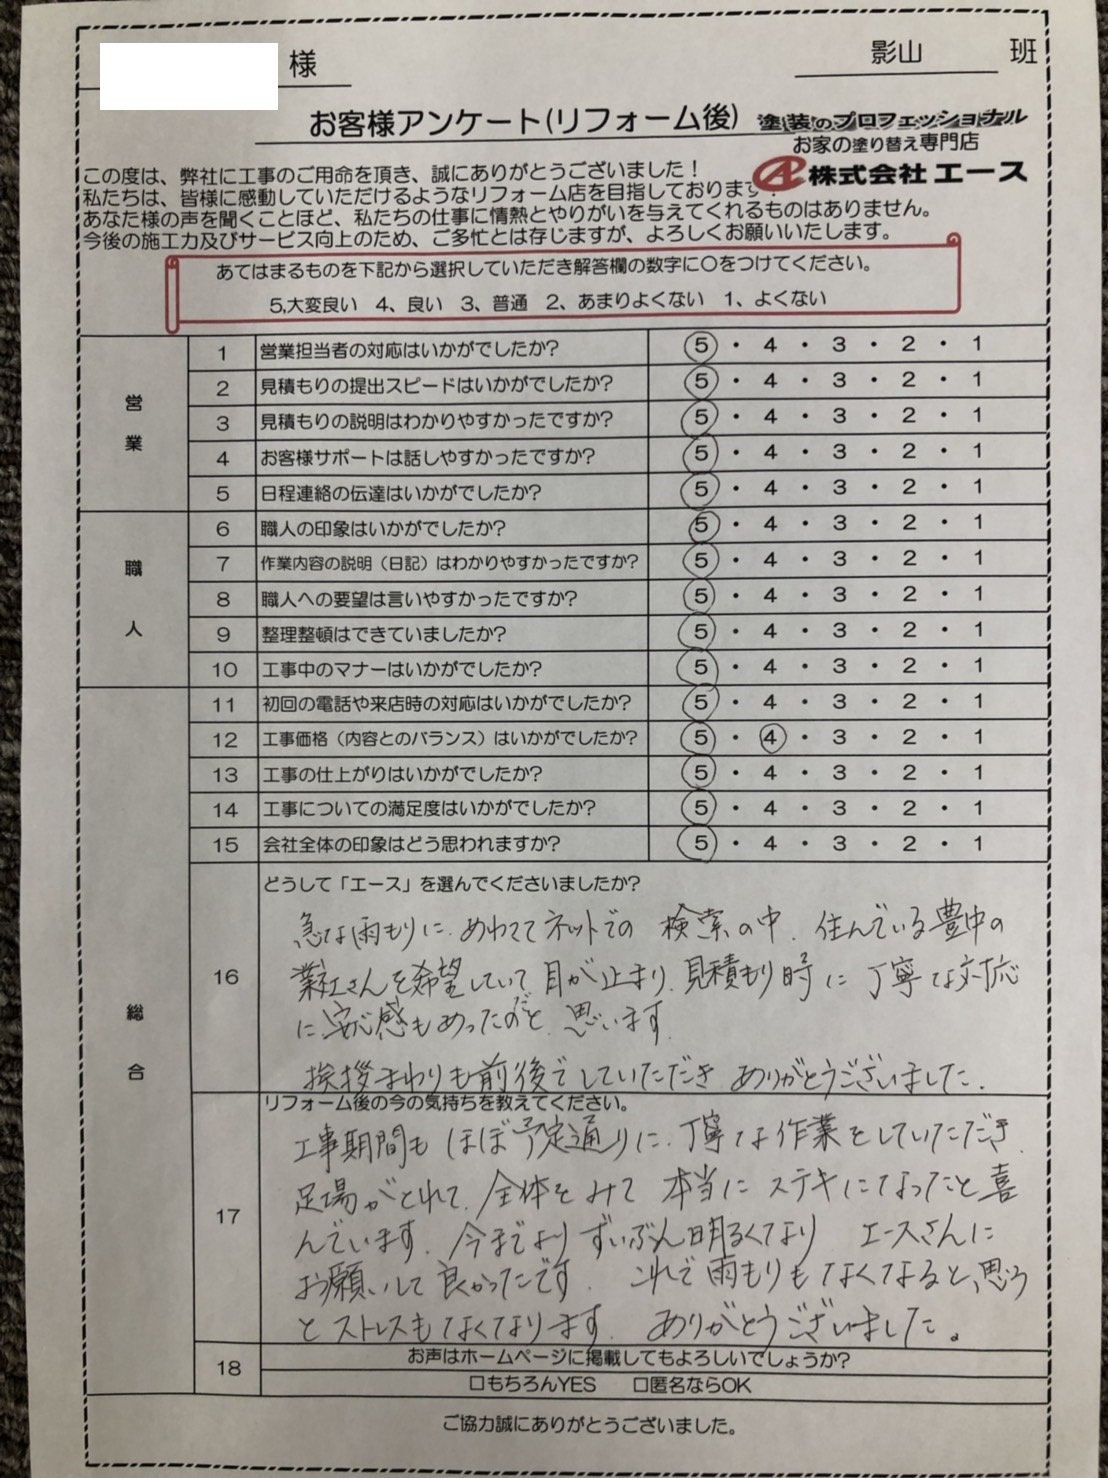 様
影山 班
お客様アンケート(リフォーム後)
塗装のプロフェッショナル
お家の塗り替え専門店
株式会社 エース
この度は、弊社に工事のご用命を頂き、誠にありがとうございました！
私たちは、皆様に感動していただけるようなリフォーム店を目指しております
あなた様の声を聞くことほど、私たちの仕事に情熱とやりがいを与えてくれるものはありません。
今後の施工力及びサービス向上のため、ご多忙とは存じますが、よろしくお願いいたします。
あてはまるものを下記から選択していただき解答欄の数字に〇をつけてください。
5,大変良い 4、良い 3、普通 2、あまりよくない 1、よくない
営業
1 営業担当者の対応はいかがでしたか? 5・4・3・2・1
2 見積もりの提出スピードはいかがでしたか? 5・4・3・2・1
3 見積もりの説明はわかりやすかったですか? 5・4・3・2・1
4 お客様サポートは話しやすかったですか? 5・4・3・2・1
5 日程連絡の伝達はいかがでしたか? 5・4・3・2・1
職人
6 職人の印象はいかがでしたか? 5・4・3・2・1
7 作業内容の説明（日記）はわかりやすかったですか? 5・4・3・2・1
8 職人への要望は言いやすかったですか? 5・4・3・2・1
9 整理整頓はできていましたか? 5・4・3・2・1
10 工事中のマナーはいかがでしたか? 5・4・3・2・1
総合
11 初回の電話や来店時の対応はいかがでしたか? 5・4・3・2・1
12 工事価格（内容とのバランス）はいかがでしたか? 5・4・3・2・1
13 工事の仕上がりはいかがでしたか? 5・4・3・2・1
14 工事についての満足度はいかがでしたか? 5・4・3・2・1
15 会社全体の印象はどう思われますか? 5・4・3・2・1
16 どうして「エース」を選んでくださいましたか?
急な雨もりに、あわててネットでの 検索の中、住んでいる豊中の
業社さんを希望していて、目が止まり、見積もり時に 丁寧な対応
に安心感もあったのだと 思います
挨拶まわりも前後でしていただき ありがとうございました。
17 リフォーム後の今の気持ちを教えてください。
工事期間も ほぼ予定通りに、丁寧な作業をしていただき
足場がとれて、全体をみて 本当に ステキになったと喜
んでいます。今までより ずいぶん明るくなり エースさんに
お願いして 良かったです。これで雨もりもなくなると、思う
とストレスもなくなります。ありがとうございました。
18 お声はホームページに掲載してもよろしいでしょうか?
□もちろんYES □匿名ならOK
ご協力誠にありがとうございました。